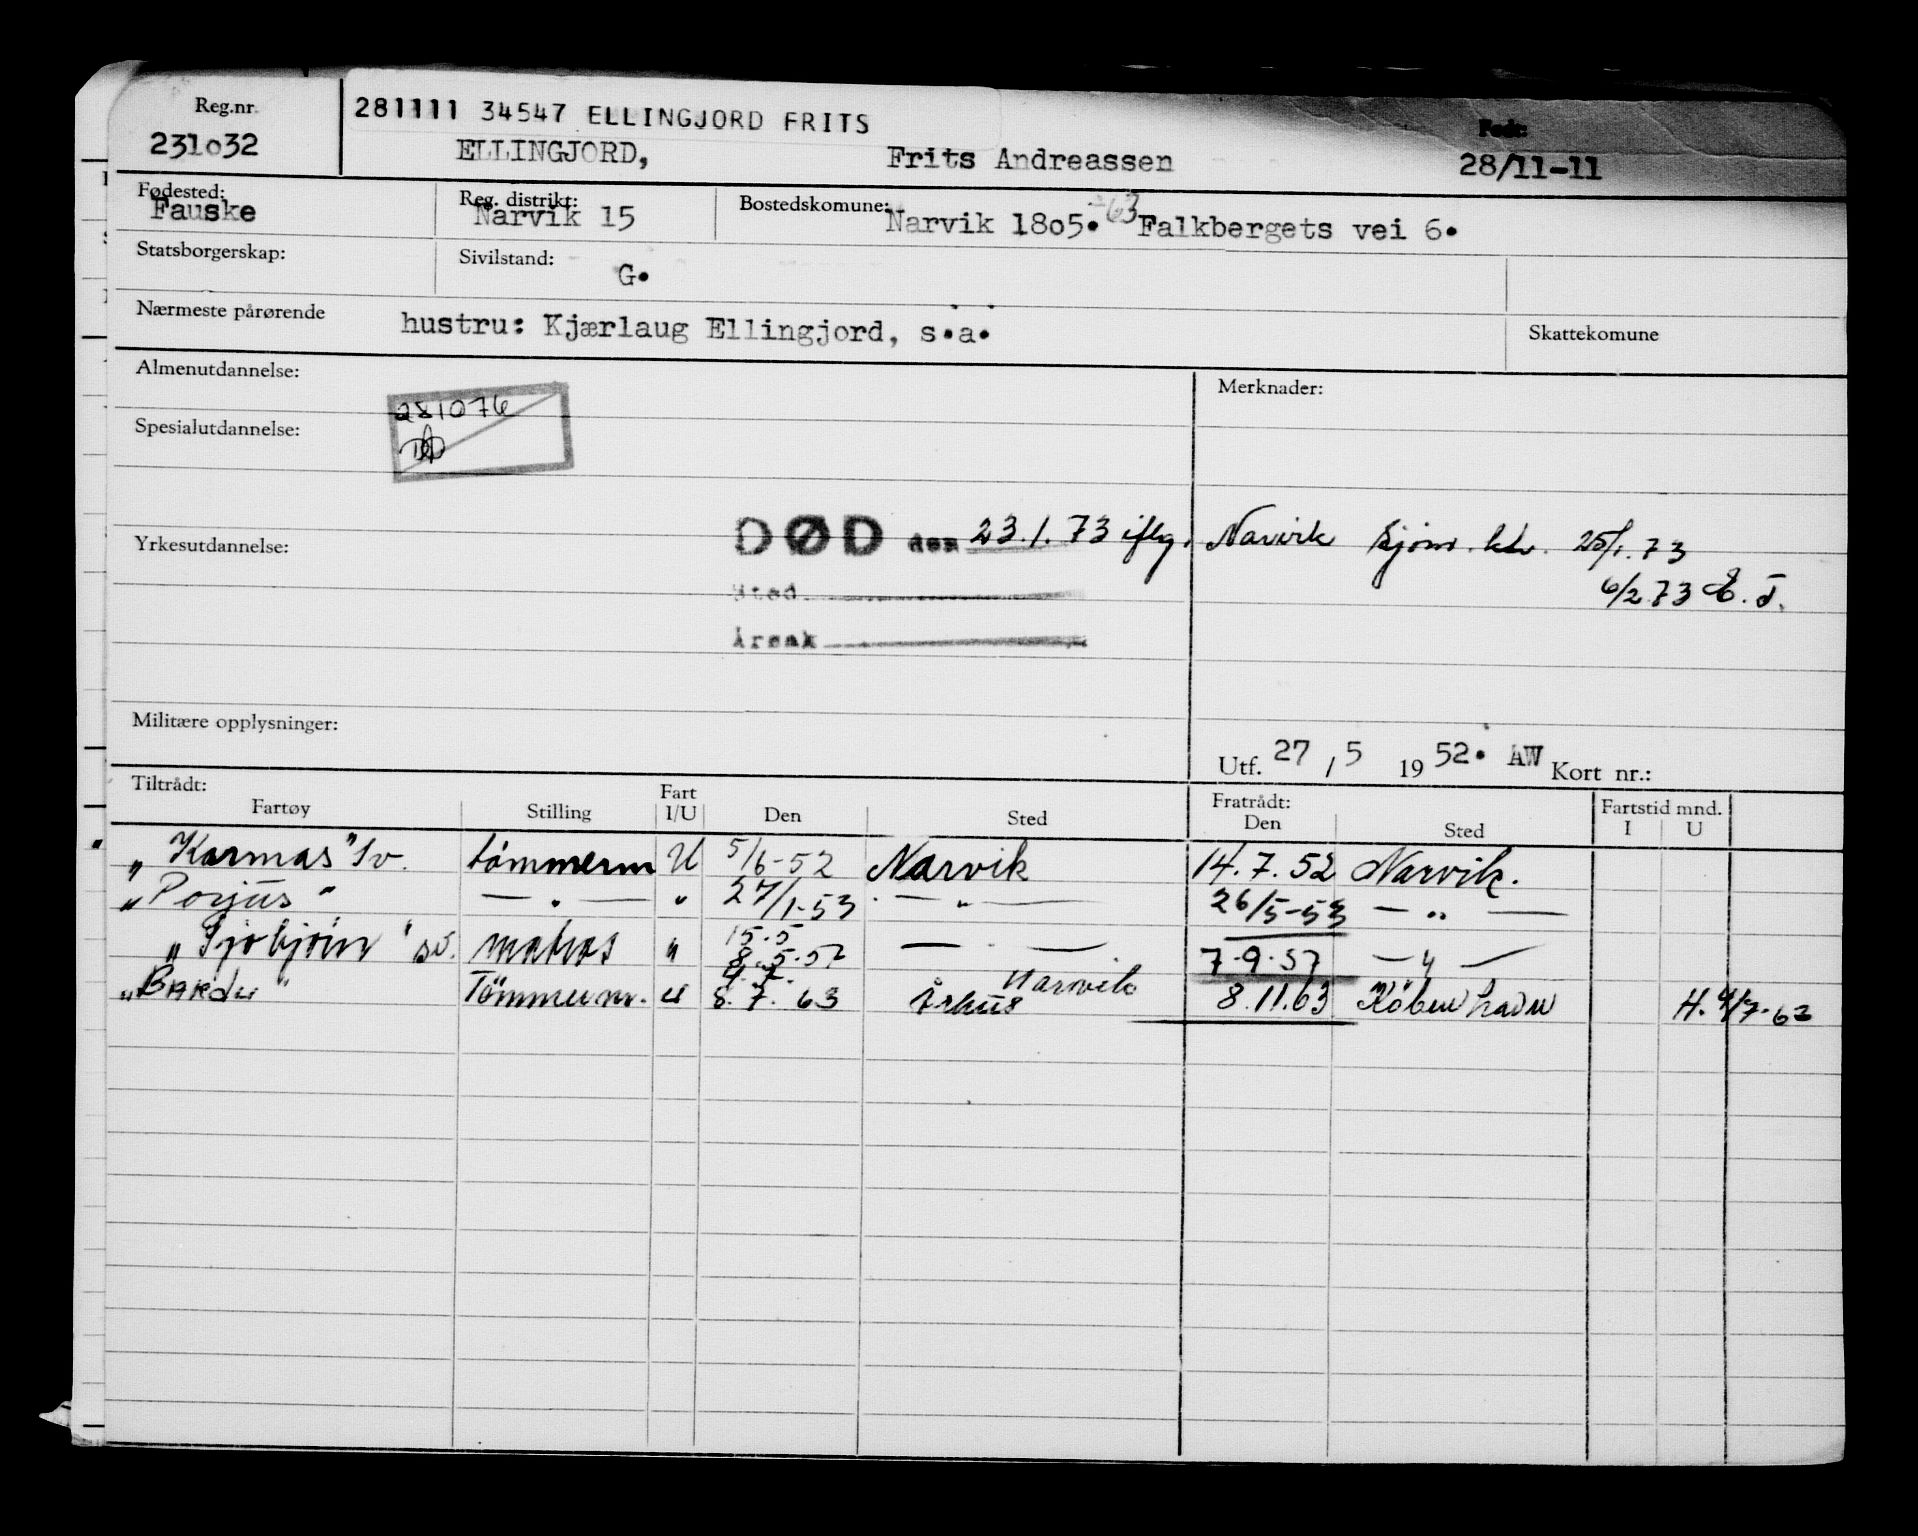 Reg.nr.
231o32
281111 34547 ELLINGJORD FRITS
ELLINGJORD, Frits Andreassen
Født:
28/11-11
Fødested:
Fauske
Reg. distrikt:
Narvik 15
Bostedskomune:
Narvik 18o5. 63 Falkbergets vei 6.
Statsborgerskap:
Sivilstand:
G.
Nærmeste pårørende
hustru: Kjærlaug Ellingjord, s.a.
Skattekomune
Almenutdannelse:
Merknader:
281076
Spesialutdannelse:
DØD den 23.1.73 iflg. Narvik Sjøm. ktr. 25/1.73
6/2 73 E.T.
Yrkesutdannelse:
Sted
Årsak
Militære opplysninger:
Utf. 27 / 5 19 52. AW Kort nr.:
Tiltrådt:
Fartøy Stilling Fart I/U Den Sted
Fratrådt:
Den Sted
Fartstid mnd.
I U
"Karmas" Sv. tömmerm U 5/6-52 Narvik 14.7.52 Narvik.
"Porjus" — " — " 27/1-53 — " — 26/5-53 — " —
15.5
" sv. matros " 8.5.57 — " — 7-9-57 — " —
4.7. Narvik
"Bardu" Tömmerm. U 8.7.63 Århus 8.11.63 Köbenhavn H. 4/7-63